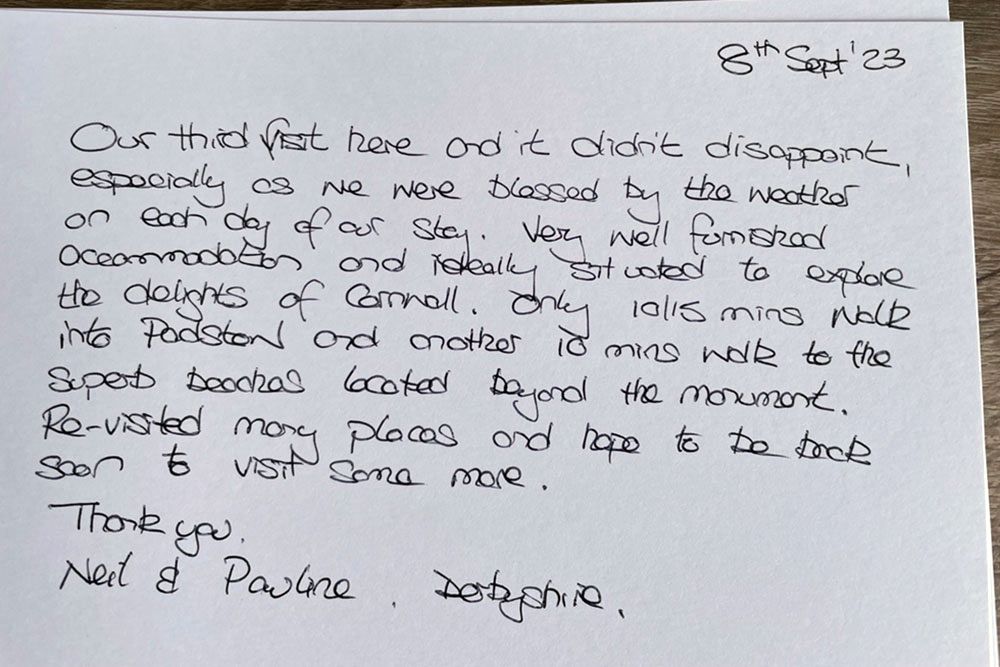 8th Sept '23
Our third visit here and it didn't disappoint,
especially as we were blessed by the weather
on each day of our stay. Very well furnished
accommodation and ideally situated to explore
the delights of Cornwall. Only 10/15 mins walk
into Padstow and another 10 mins walk to the
superb beaches located beyond the monument.
Re-visited many places and hope to be back
soon to visit some more.
Thank you.
Neil & Pauline. Derbyshire.